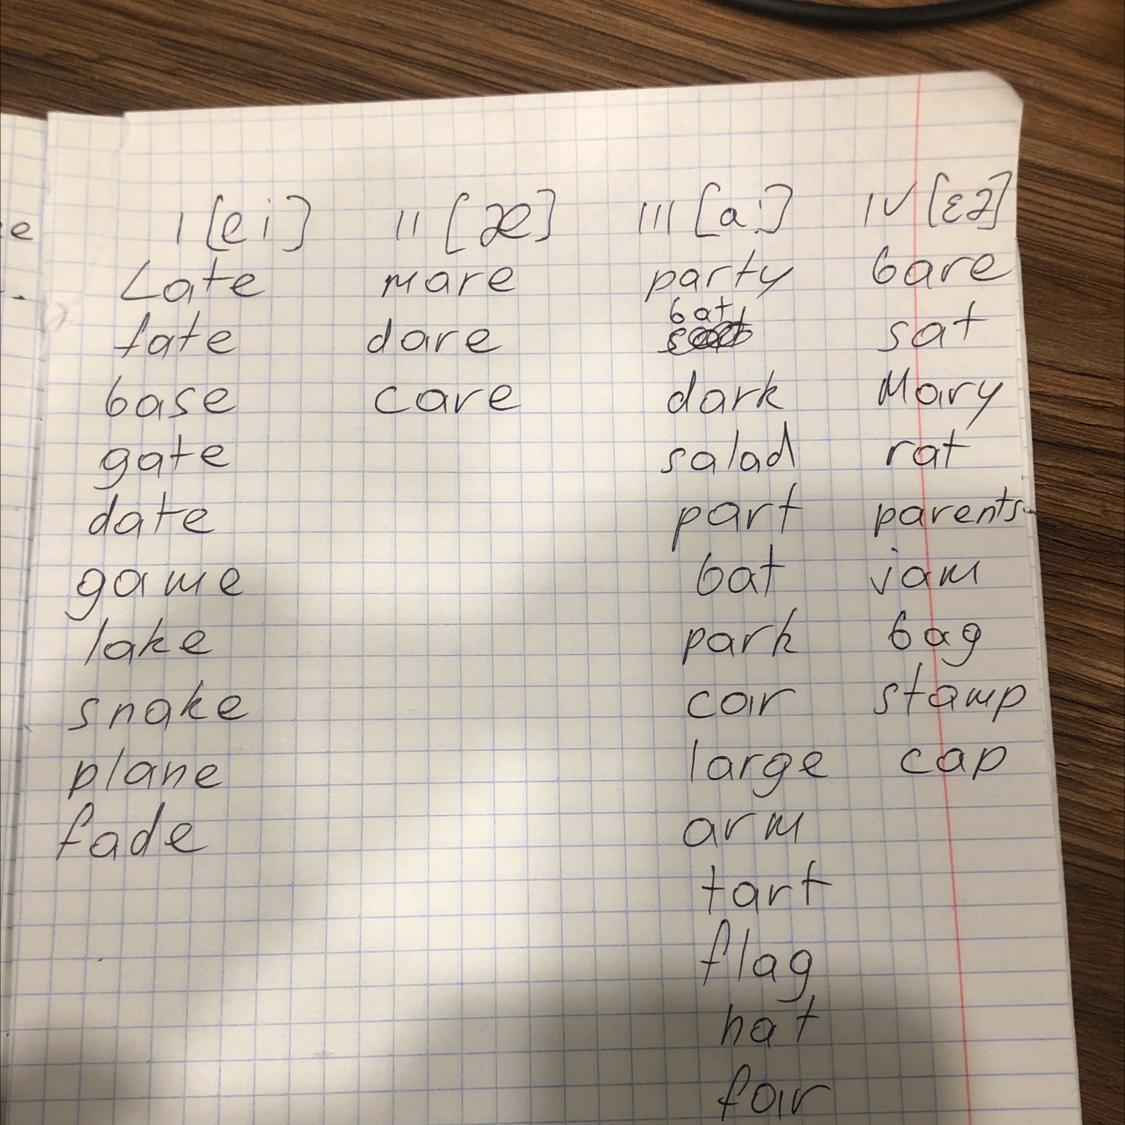 I [ei] II [æ] III [a:] IV [ɛə]
Late mare party bare
fate dare bat sat
base care dark Mary
gate salad rat
date part parents
game bat jam
lake park bag
snake car stamp
plane large cap
fade arm
tart
flag
hat
far
e